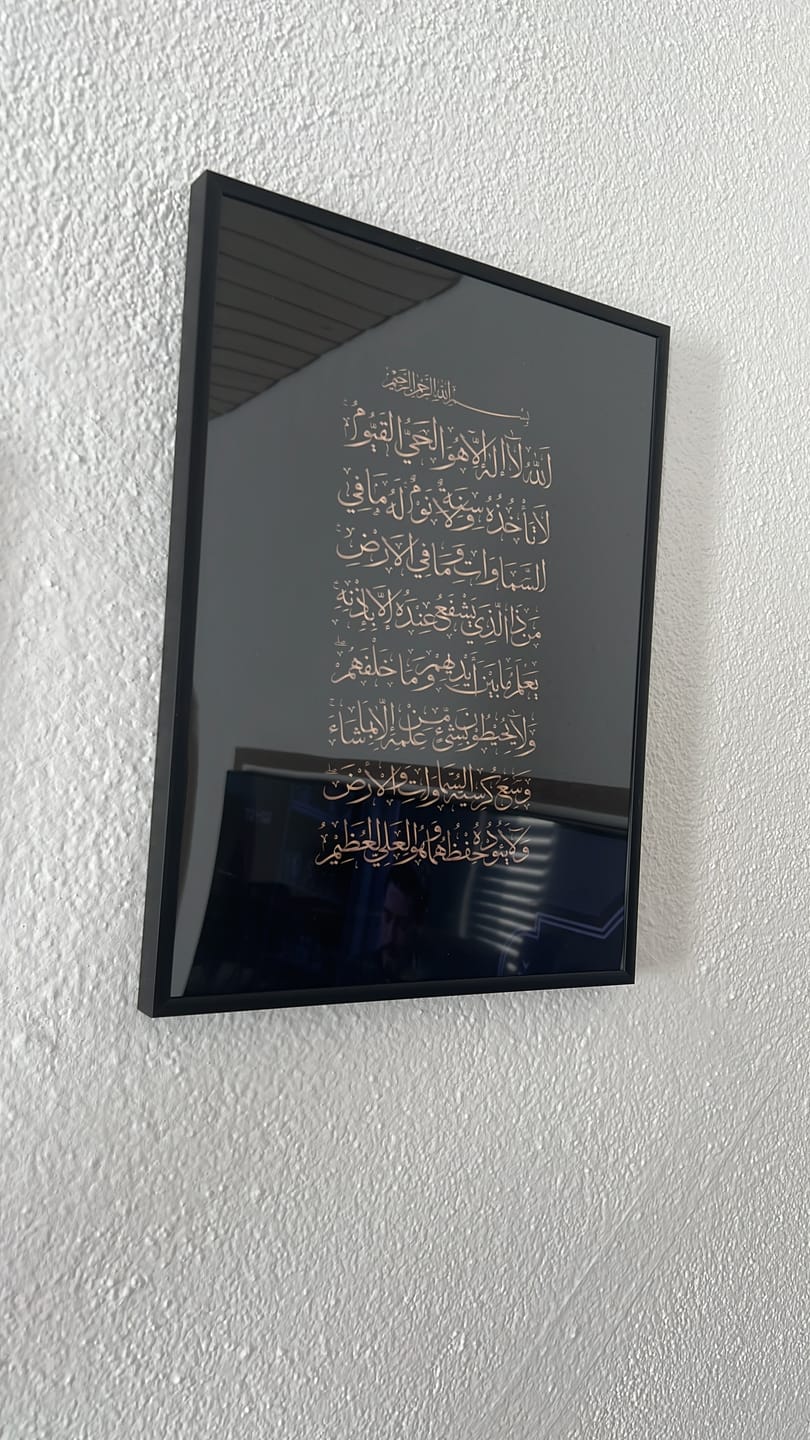 بسم الله الرحمن الرحيم
اَللّٰهُ لَآ اِلٰهَ اِلَّا هُوَ الْحَيُّ الْقَيُّومُ
لَا تَأْخُذُهُ سِنَةٌ وَلَا نَوْمٌ لَهُ مَا فِي
السَّمَاوَاتِ وَمَا فِي الْاَرْضِ
مَنْ ذَا الَّذِي يَشْفَعُ عِنْدَهُ اِلَّا بِاِذْنِهِ
يَعْلَمُ مَا بَيْنَ اَيْدِيهِمْ وَمَا خَلْفَهُمْ
وَلَا يُحِيطُونَ بِشَيْءٍ مِنْ عِلْمِهِ اِلَّا بِمَا شَاءَ
وَسِعَ كُرْسِيُّهُ السَّمَاوَاتِ وَالْاَرْضَ
وَلَا يَئُودُهُ حِفْظُهُمَا وَهُوَ الْعَلِيُّ الْعَظِيمُ